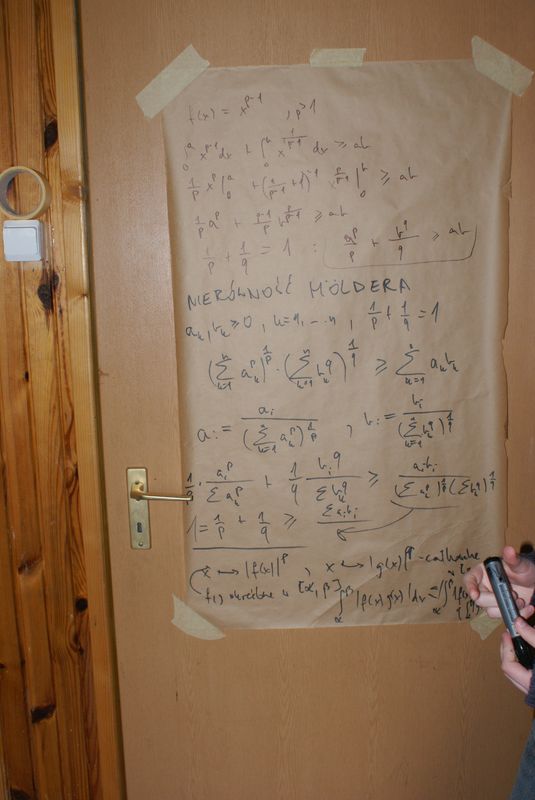 f(x) = x^{p-1} , p>1
∫_0^a x^{p-1} dx + ∫_0^b x^{\frac{1}{p-1}} dx ≥ ab
\frac{1}{p} x^p |_0^a + (\frac{1}{p-1}+1)^{-1} x^{\frac{p}{p-1}} |_0^b ≥ ab
\frac{1}{p} a^p + \frac{p-1}{p} b^{\frac{p}{p-1}} ≥ ab
\frac{1}{p} + \frac{1}{q} = 1 : \frac{a^p}{p} + \frac{b^q}{q} ≥ ab
NIERÓWNOŚĆ HÖLDERA
a_k, b_k ≥ 0, k=1,...n, \frac{1}{p} + \frac{1}{q} = 1
(∑_{k=1}^n a_k^p)^{\frac{1}{p}} · (∑_{k=1}^n b_k^q)^{\frac{1}{q}} ≥ ∑_{k=1}^n a_k b_k
a := \frac{a_i}{(∑_{k=1}^n a_k^p)^{\frac{1}{p}}} , b := \frac{b_i}{(∑_{k=1}^n b_k^q)^{\frac{1}{q}}}
\frac{1}{p} · \frac{a_i^p}{∑ a_k^p} + \frac{1}{q} \frac{b_i^q}{∑ b_k^q} ≥ \frac{a_i b_i}{(∑ a_k^p)^{\frac{1}{p}} (∑ b_k^q)^{\frac{1}{q}}}
1 = \frac{1}{p} + \frac{1}{q} ≥ \frac{∑ a_i b_i}{}
x ↦ |f(x)|^p , x ↦ |g(x)|^q - całkowalne
określone [α, β] ∫_α^β |f(x) g(x)| dx